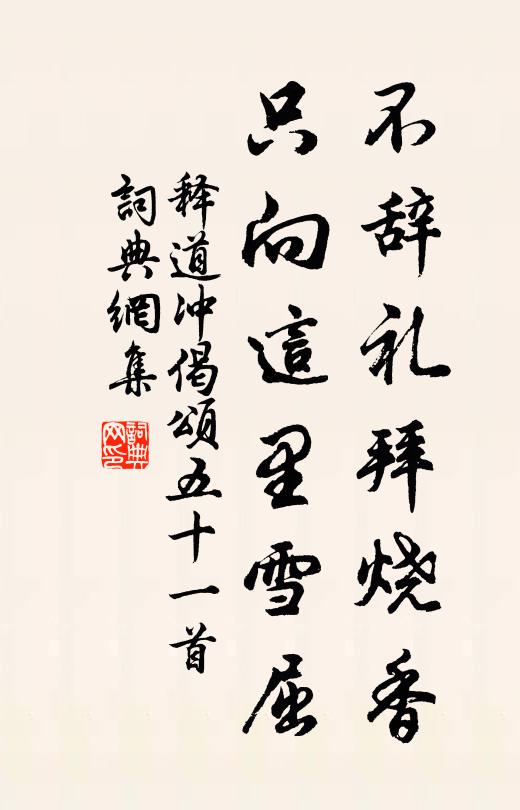 不辞礼拜烧香
只向這里雪屈
释道冲偈頌五十一首
詞典網集
詞典
网印